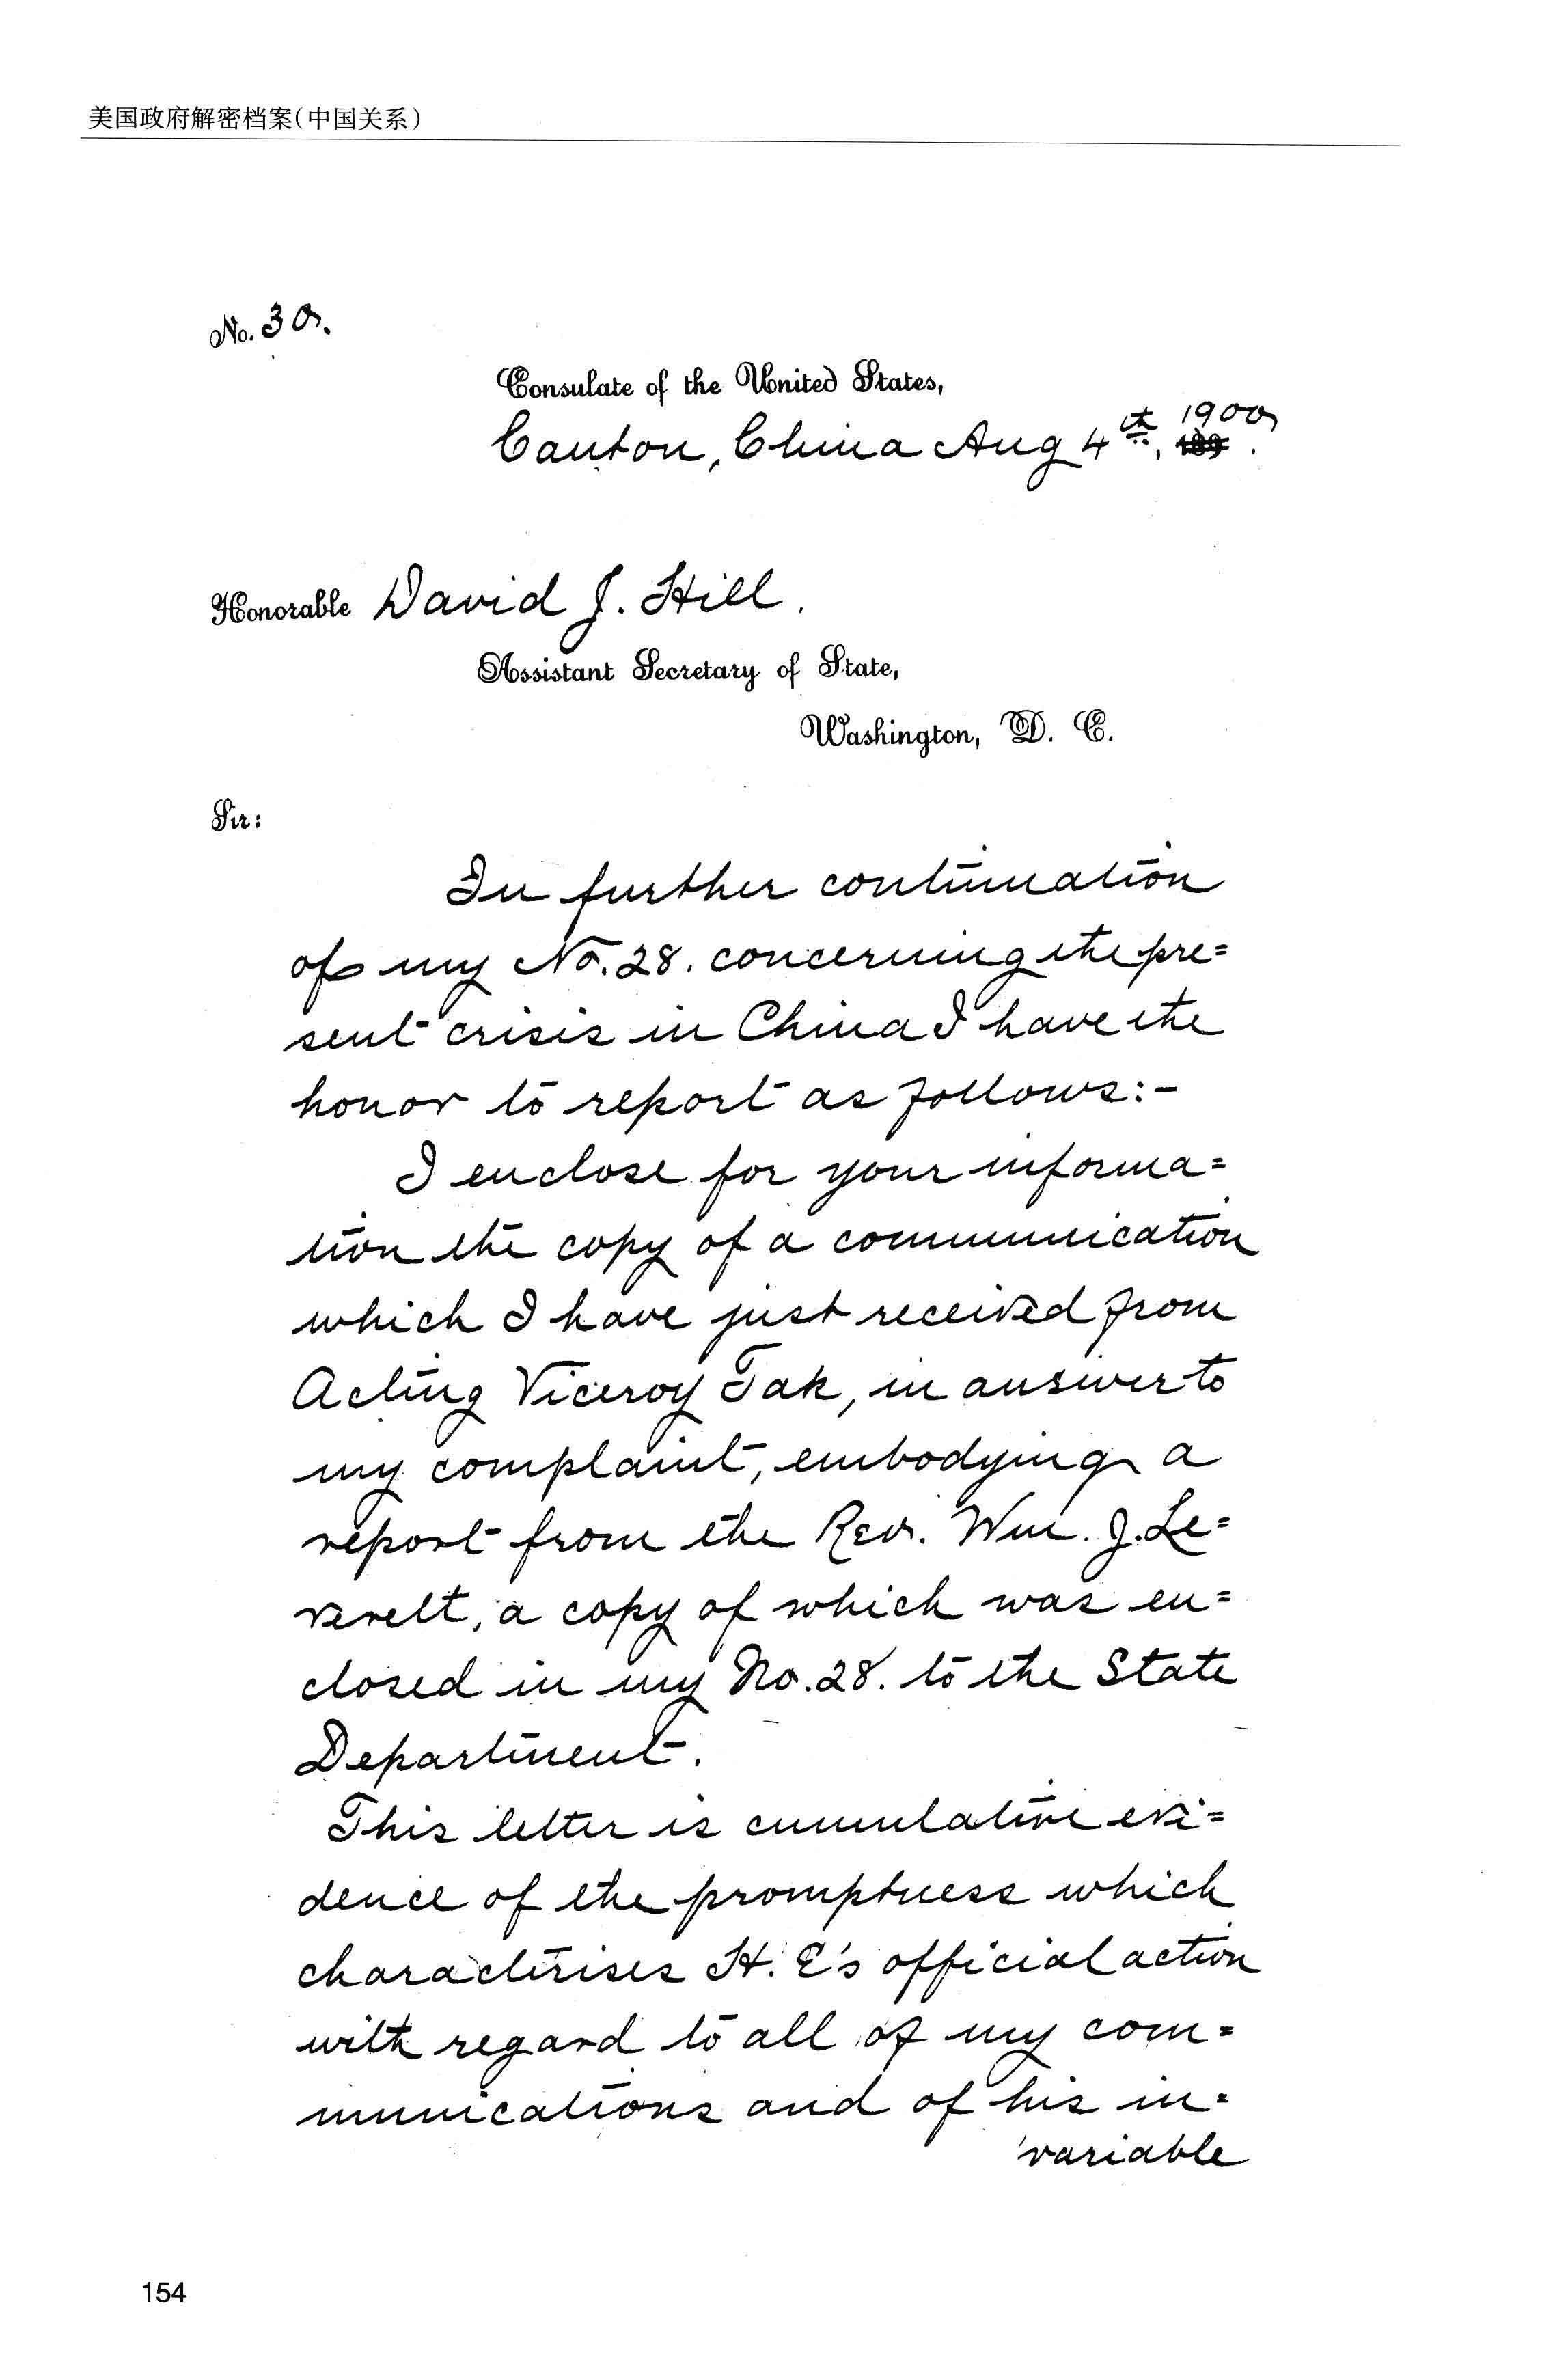 美国政府解密档案(中国关系)
No. 30.
Consulate of the United States,
Canton, China Aug 4th, 1900.
Honorable David J. Hill.
Assistant Secretary of State,
Washington, D. C.
Sir:
In further continuation
of my No. 28. concerning the pre=
sent crisis in China I have the
honor to report as follows:-
I enclose for your informa=
tion the copy of a communication
which I have just received from
Acting Viceroy Tak, in answer to
my complaint, embodying a
report from the Rev. Wm. J. Le=
verett, a copy of which was en=
closed in my No. 28. to the State
Department.
This letter is cumulative evi=
dence of the promptness which
characterises H. E's official action
with regard to all of my com=
munications and of his in=
variable
154